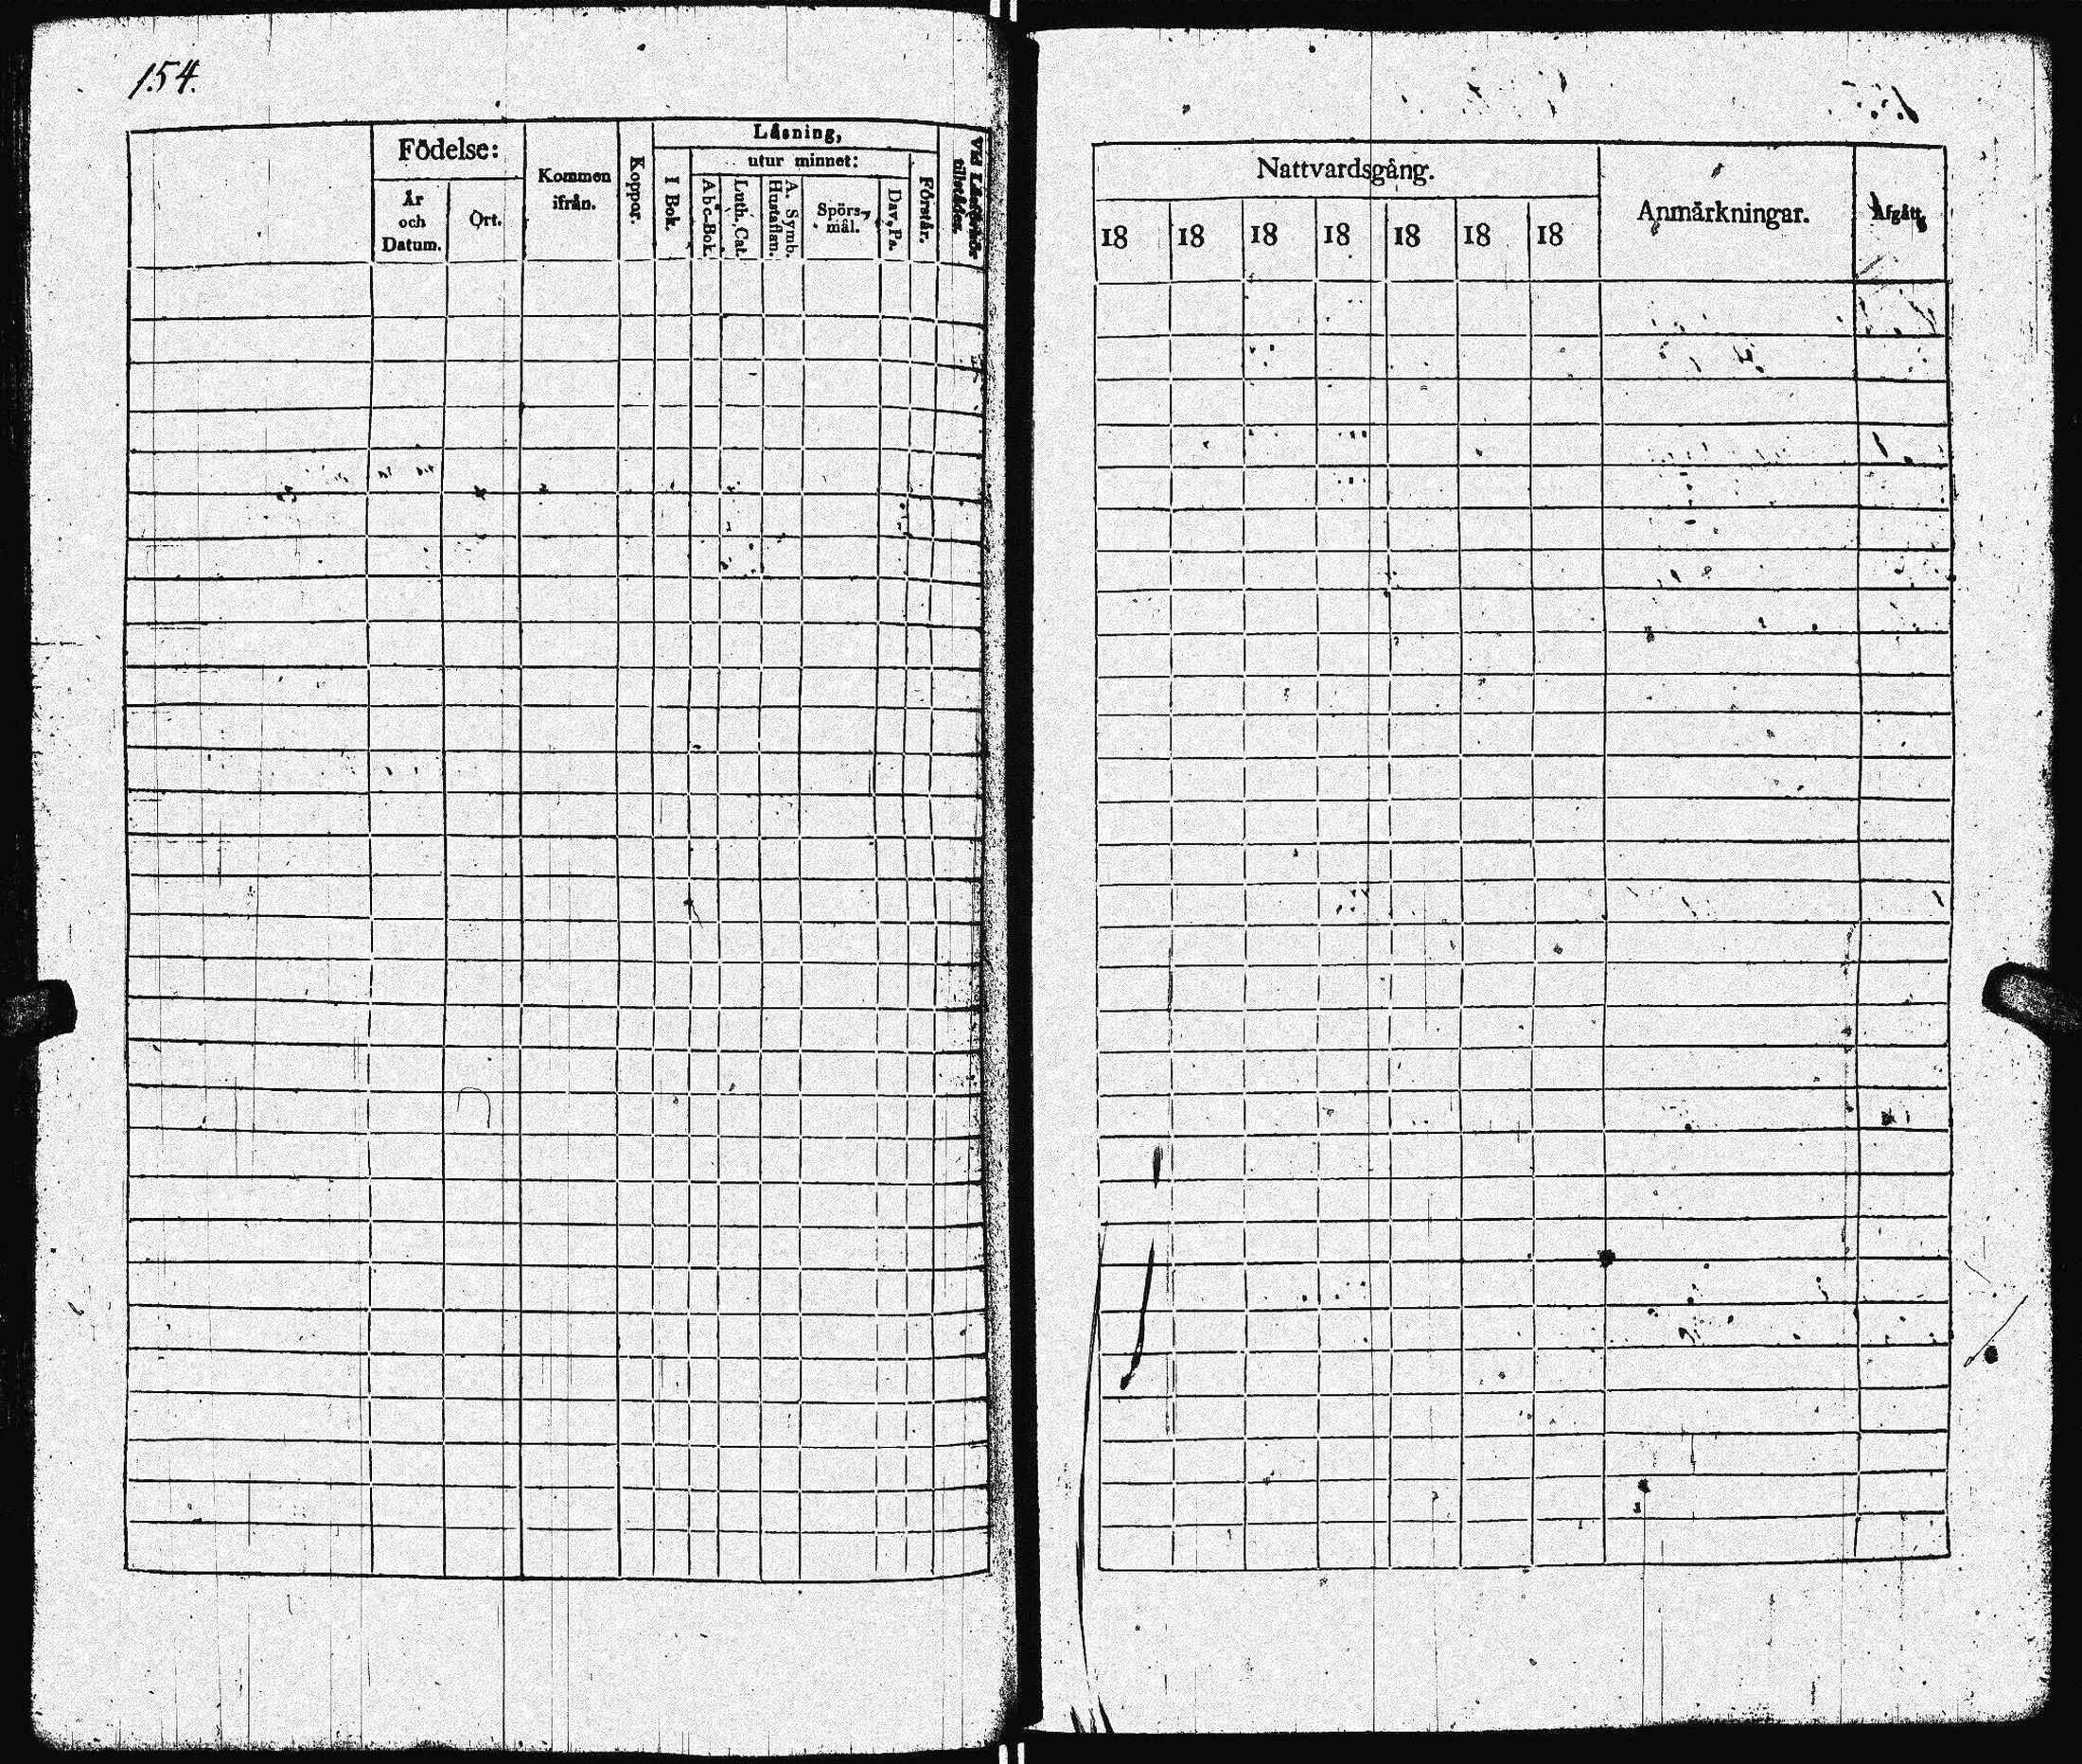 154.
Födelse:
År
och
Datum.
Ort.
Kommen
ifrån.
Koppor.
Läsning,
I Bok.
utur minnet:
Abc-Bok.
Luth. Cat.
A. Symb.
Hustaflan.
Spörs-
mål.
Dav. Ps.
Förstår.
Vid Läsförhör
tillstädes.
Nattvardsgång.
18 18 18 18 18 18 18
Anmärkningar.
Afgått.